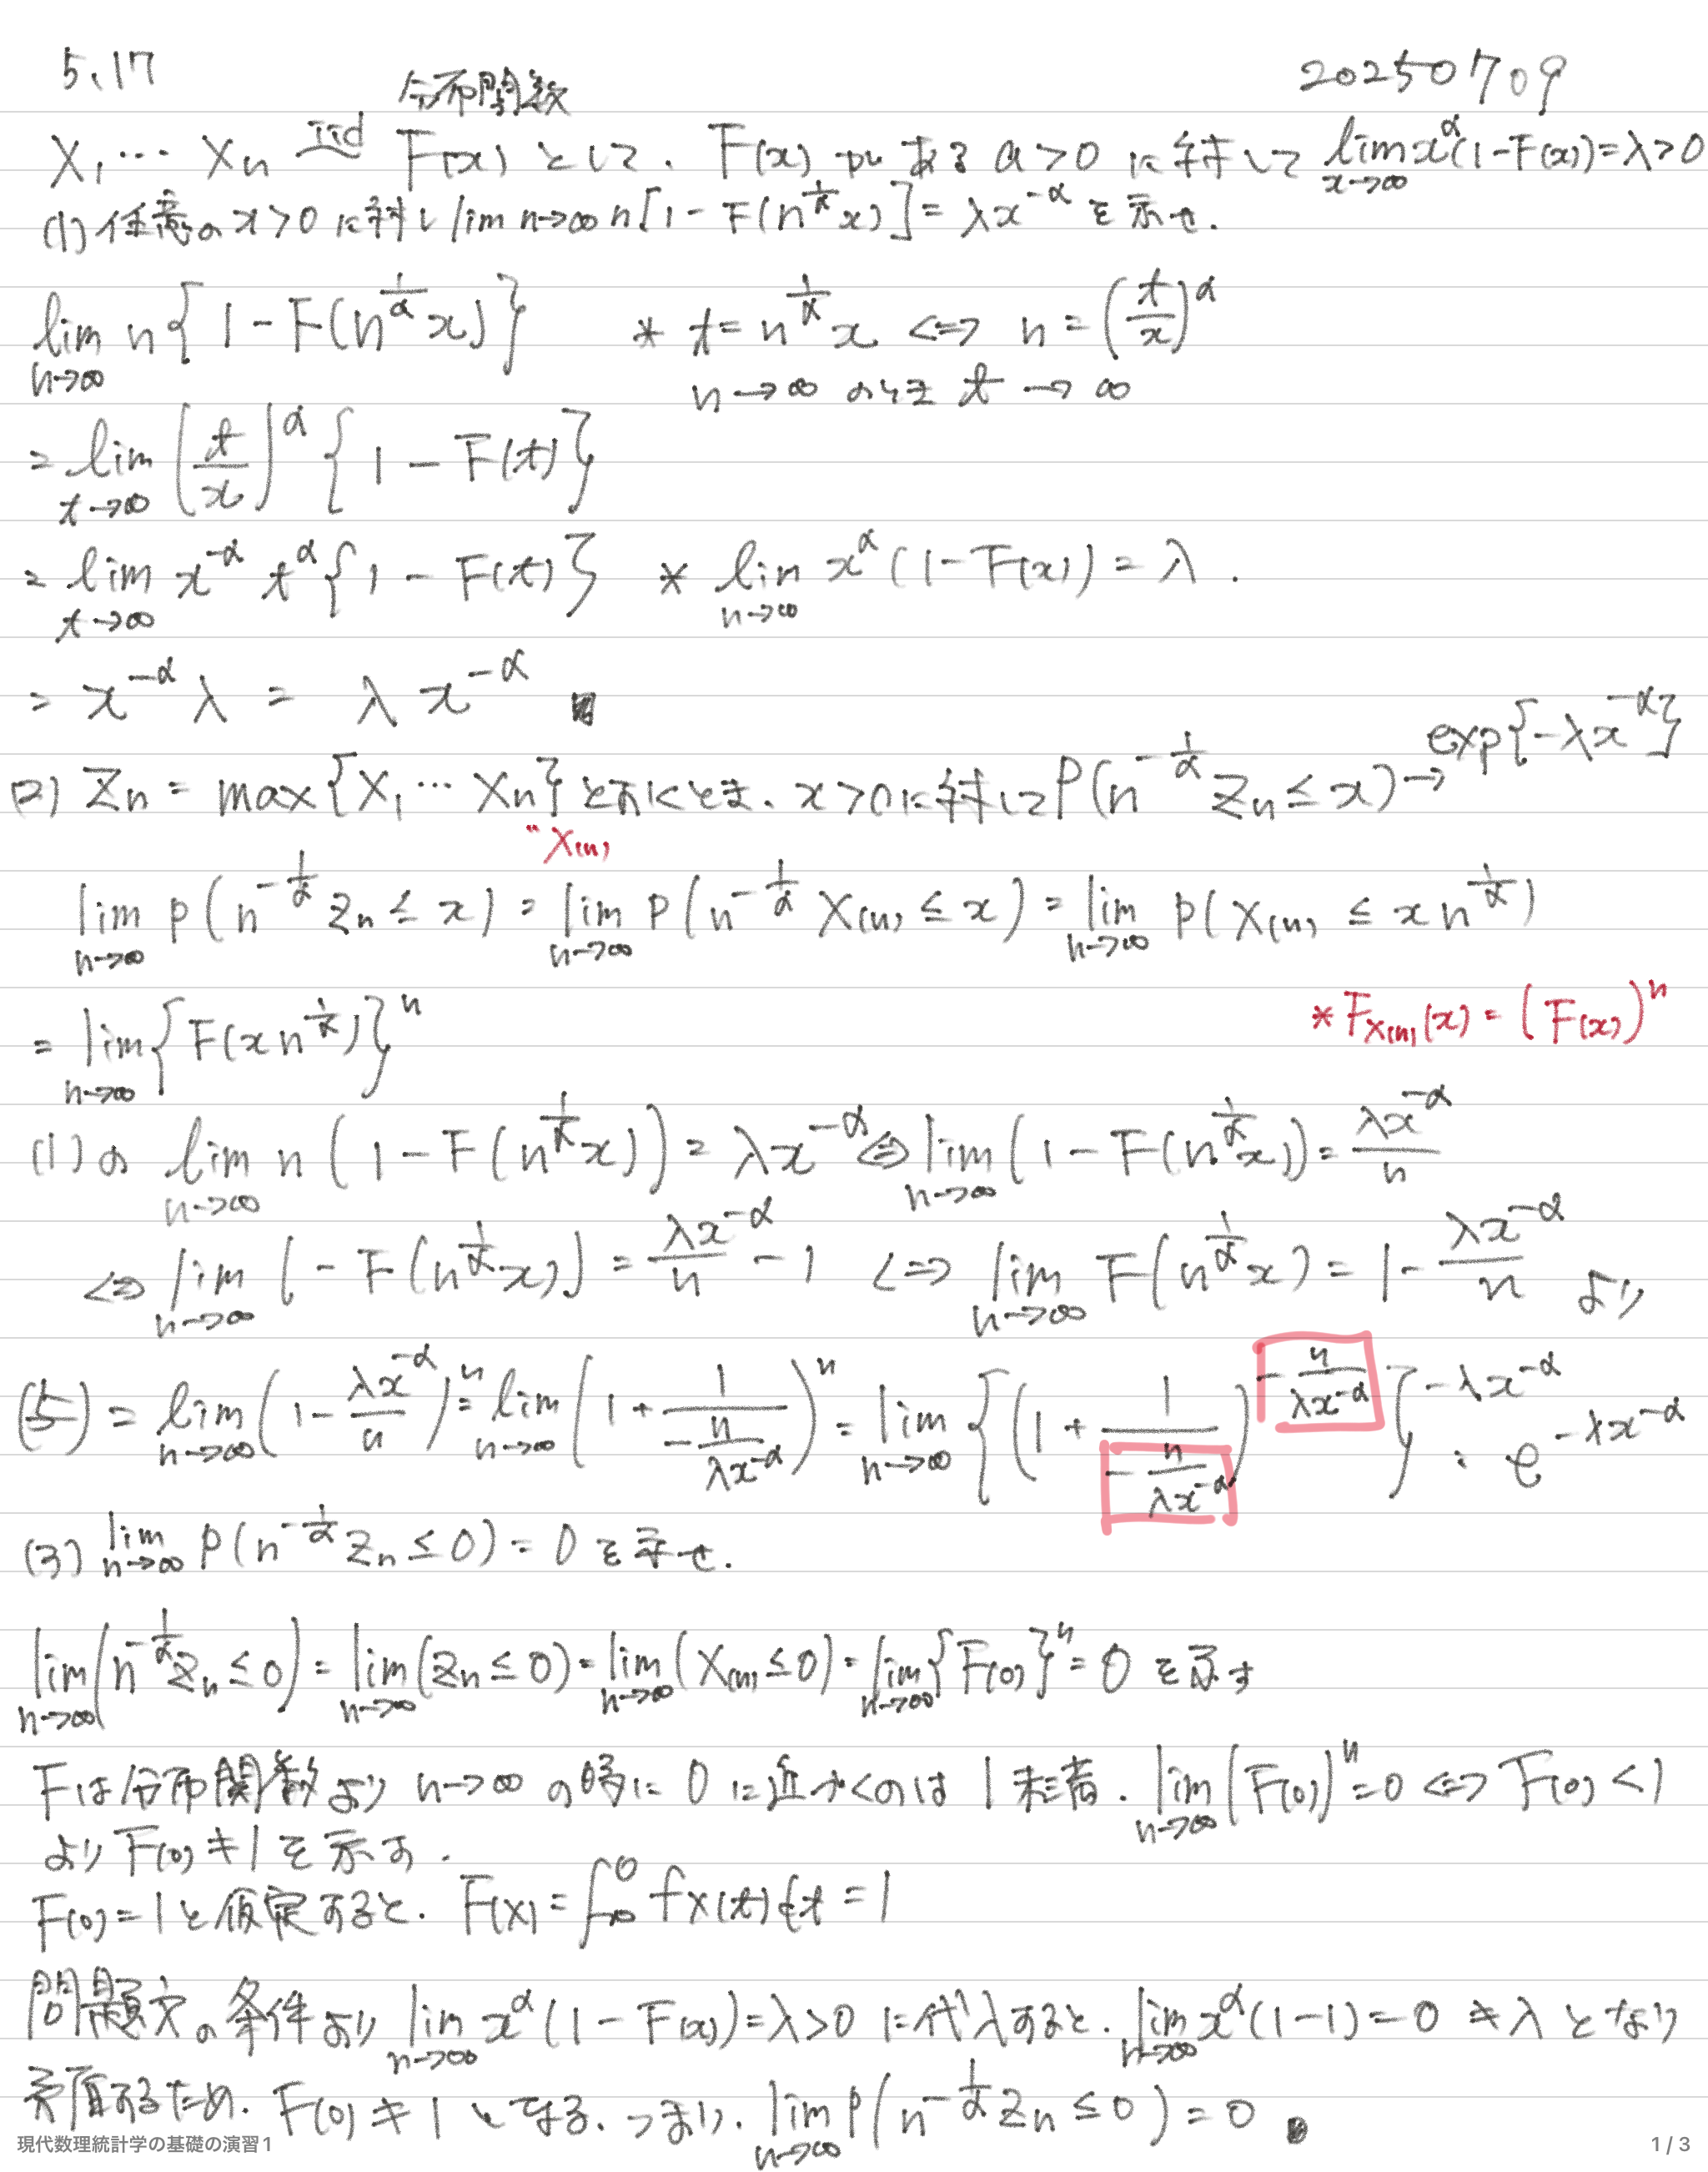 5.17
20250709
分布関数
X₁ … Xn iid~ F(x) として、F(x) が ある α>0 に対して lim_{x→∞} x^α(1-F(x))=λ>0
(1) 任意の x>0 に対し lim n→∞ n[1-F(n^{1/α}x)]=λx^{-α} を示せ.
lim_{n→∞} n{1-F(n^{1/α}x)} * t=n^{1/α}x ⇔ n=(t/x)^α
n→∞ のとき t→∞
= lim_{t→∞} (t/x)^α {1-F(t)}
= lim_{t→∞} x^{-α} t^α {1-F(t)} * lim_{n→∞} x^α(1-F(x))=λ.
= x^{-α}λ = λx^{-α}
(2) Zn = max{X₁ … Xn} とおくとき、x>0に対して P(n^{-1/α} Zn ≤ x) → exp{-λx^{-α}}
" X(n)
lim_{n→∞} P(n^{-1/α} Zn ≤ x) = lim_{n→∞} P(n^{-1/α} X(n) ≤ x) = lim_{n→∞} P(X(n) ≤ x n^{1/α})
= lim_{n→∞} {F(x n^{1/α})}^n * F_{X(n)}(x) = (F(x))^n
(1) の lim_{n→∞} n(1-F(n^{1/α}x)) = λx^{-α} ⇔ lim_{n→∞} (1-F(n^{1/α}x)) = λx^{-α}/n
⇔ lim_{n→∞} (-F(n^{1/α}x)) = λx^{-α}/n - 1 ⇔ lim_{n→∞} F(n^{1/α}x) = 1 - λx^{-α}/n より
(与) = lim_{n→∞} (1 - λx^{-α}/n)^n = lim_{n→∞} (1 + 1/(-n/(λx^{-α})))^n = lim_{n→∞} {(1 + 1/(-n/(λx^{-α})))^{-n/(λx^{-α})}}^{-λx^{-α}} = e^{-λx^{-α}}
(3) lim_{n→∞} P(n^{-1/α} Zn ≤ 0) = 0 を示せ.
lim_{n→∞} (n^{-1/α} Zn ≤ 0) = lim_{n→∞} (Zn ≤ 0) = lim_{n→∞} (X(n) ≤ 0) = lim_{n→∞} {F(0)}^n = 0 を示す
Fは分布関数より n→∞ の時に 0 に近づくのは 1未満. lim_{n→∞} (F(0))^n = 0 ⇔ F(0) < 1
より F(0) ≠ 1 を示す.
F(0)=1 と仮定すると. F(x) = ∫_{-∞}^{0} fx(t)dt = 1
問題文の条件より lim_{n→∞} x^α(1-F(x))=λ>0 に代入すると. lim_{n→∞} x^α(1-1)=0 ≠ λ となり
矛盾するため. F(0) ≠ 1 となる. つまり. lim_{n→∞} P(n^{-1/α} Zn ≤ 0) = 0
現代数理統計学の基礎の演習1
1 / 3